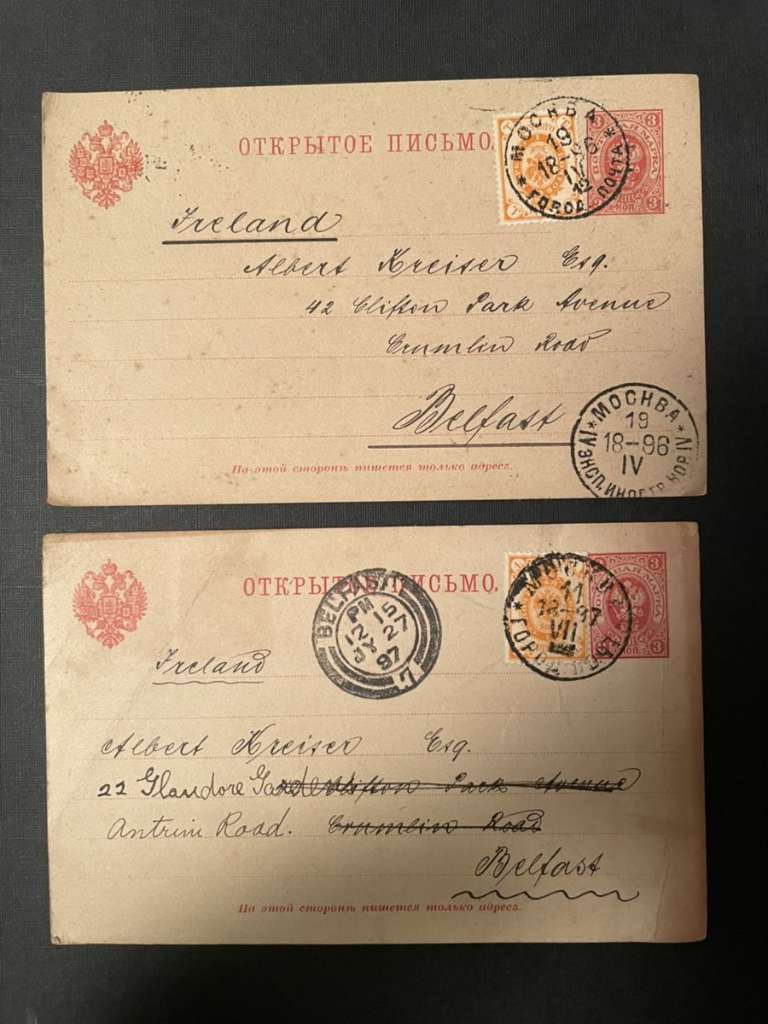 ОТКРЫТОЕ ПИСЬМО.
МОСКВА
19
18-96
IV
12
ГОРОД. ПОЧТА
3
3
3
Ireland
Albert Kreiser Esq.
42 Clifton Park Avenue
Crumlin Road
Belfast
МОСКВА
19
18-96
IV
На этой сторонѣ пишется только адресъ.
ОТКРЫТ ПИСЬМО.
BELFAST
PM
12 15
JY 27
97
7
11
18-97
VII
3
3
3
Ireland
Albert Kreiser Esq.
22 Glandore Gardens Clifton Park Avenue
Antrim Road. Crumlin Road
Belfast
На этой сторонѣ пишется только адресъ.